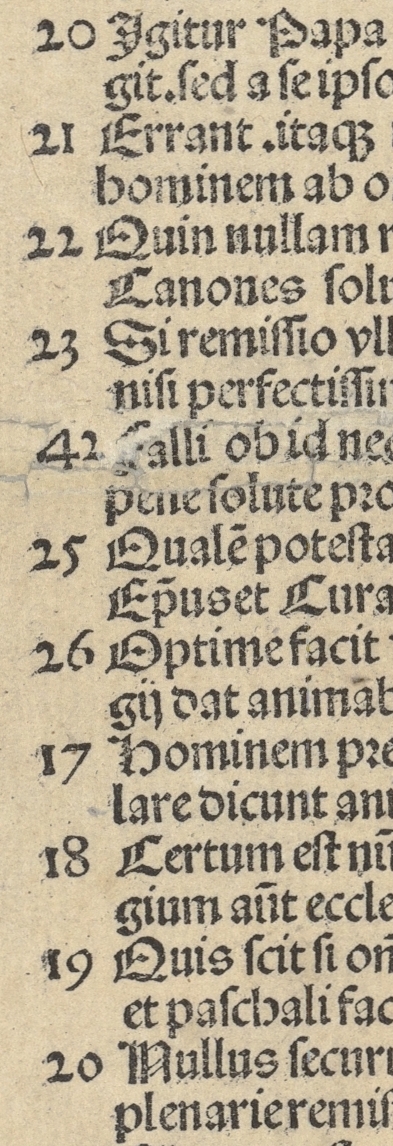 20 Igitur Papa
git.sed a seipso
21 Errant .itaqꝫ
hominem ab o
22 Quin nullam
Canones solu
23 Si remissio vll
nisi perfectissim
42 Falli ob id nec
pene solute pro
25 Qualē potesta
Ep̄us et Cura
26 Optime facit
gij dat animab
17 Hominem pre
lare dicunt ani
18 Certum est nū
gium aūt eccle
19 Quis scit si om
et paschali fac
20 Nullus securu
plenarie remis